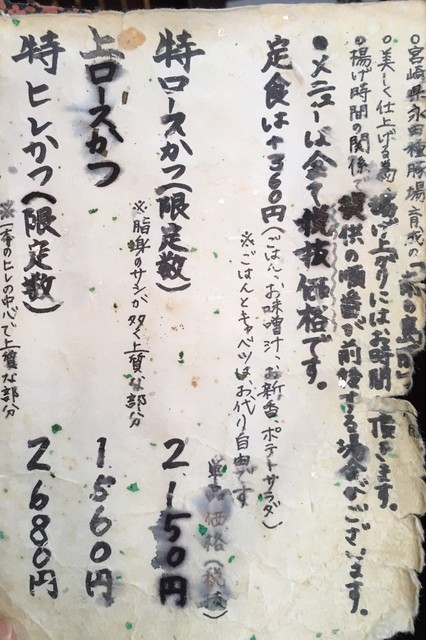 ○宮崎県永田種豚場育成の「
○美しく仕上げる為 揚げ上りにはお時間 頂きます。
●揚げ時間の関係で提供の順番が前後する場合がございます。
●メニューは全て税抜価格です。
定食は+360円(ごはん、お味噌汁、お新香、ポテトサラダ)
※ごはんとキャベツは、お代り自由です
単品価格(税抜)
特ロースかつ(限定数) 2,150円
※脂身のサシが多く上質な部分
上ロースかつ 1,560円
特ヒレかつ(限定数) 2,680円
※一本のヒレの中心で上質な部分